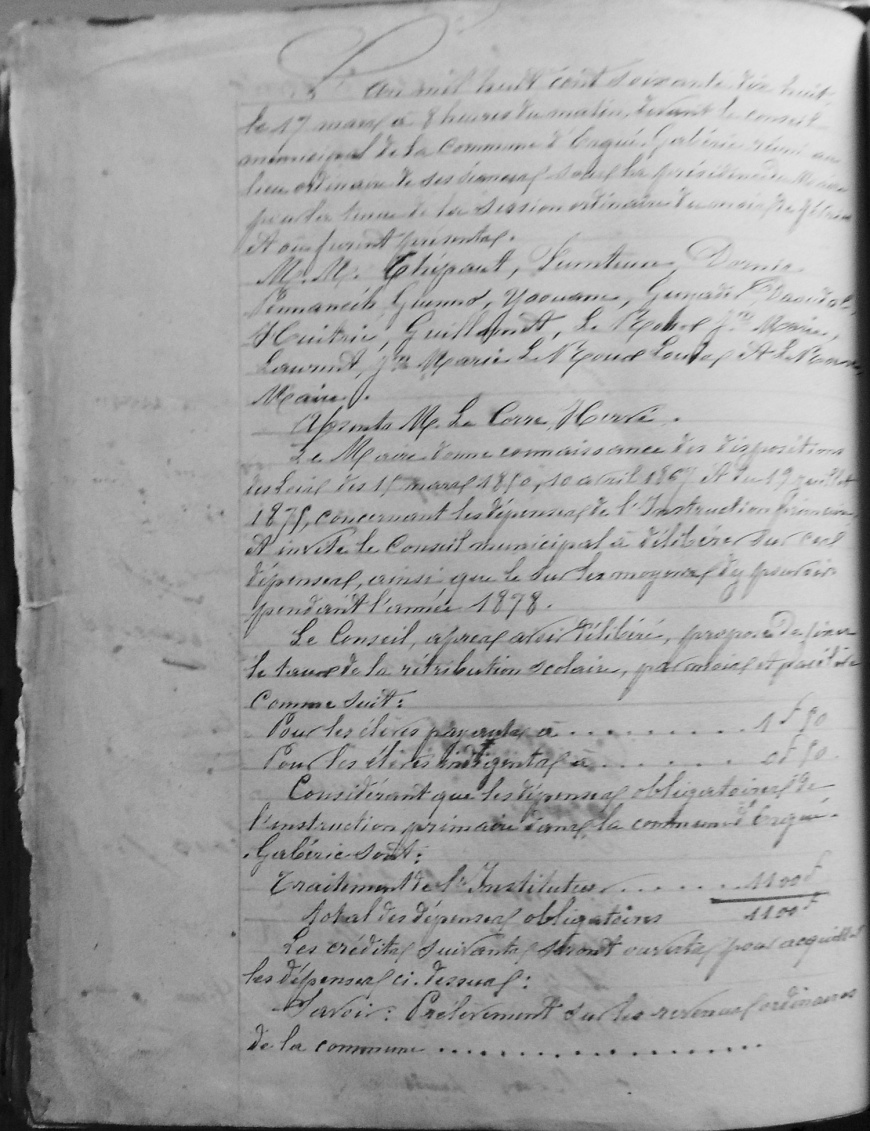 L'an mil huit cent soixante dix huit
le 17 mars à 8 heures du matin, devant le conseil
municipal de la commune d'Ergué-Gabéric réuni au
lieu ordinaire de ses séances sous la présidence du Maire
pour la tenue de la session ordinaire du mois de février
Et où furent présents.
M. M. Thépaut, Lumteur, Dornic
Pennanech, Guenno, Yaouanc, Huitric, Guillamet, Le
Laurent, Jn Marie Le Roux Louis Et Le
Maire.
Absents M. Le Corre, Hervé.
Le Maire donne connaissance des dispositions
des Lois des 15 mars 1850, 10 avril 1867 Et du 19 juillet
1875, concernant les dépenses de l'Instruction primaire
Et invite le Conseil municipal à délibérer sur ces
dépenses, ainsi que le sur les moyens d'y pourvoir
pendant l'année 1878.
Le Conseil, après avoir délibéré, propose de fixer
le taux de la rétribution scolaire, par mois et par élève
comme suit:
Pour les élèves payants à .......... 1f 50
Pour les élèves indigents à ........ 0f 50.
Considérant que les dépenses obligatoires de
l'instruction primaire dans la commune d'Ergué-
Gabéric sont:
Traitement de l'Instituteur ....... 1100f
total des dépenses obligatoires 1100f
Les crédits suivants seront ouverts pour acquitter
les dépenses ci-dessus:
Savoir: Prélèvement sur les revenus ordinaires
de la commune ..................